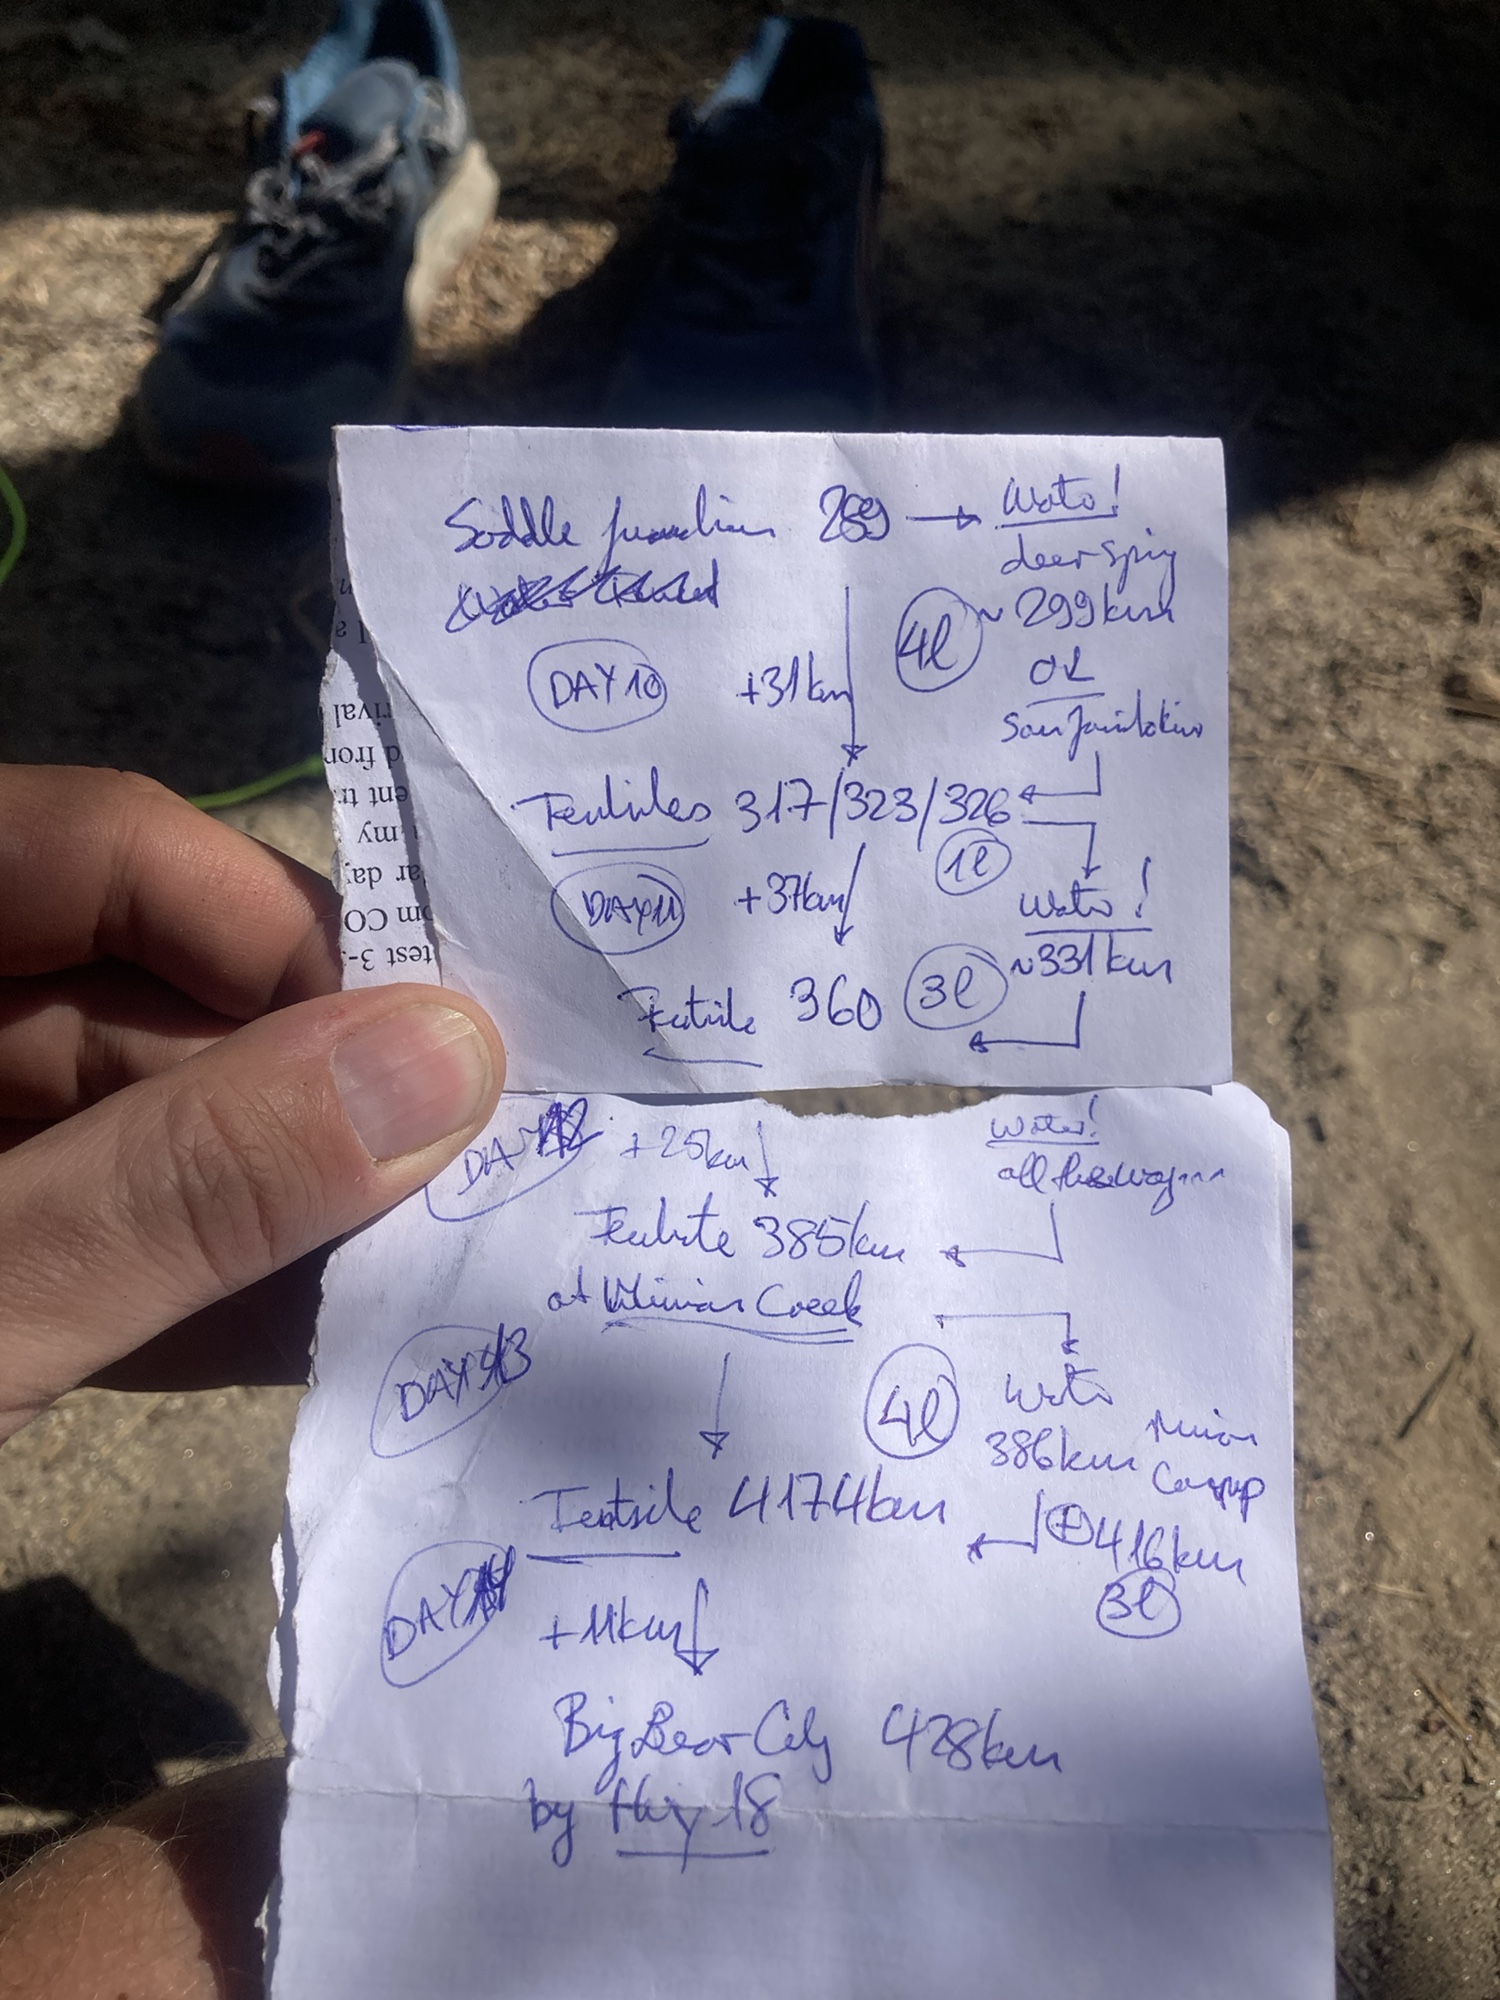 Saddle Junction 289 → Water!
deer spring
~ 299km
4l
OR
DAY 10 +31km
San Jacinto
Tentsites 317/323/326
1l
DAY 11 +37km
Water!
~331km
Tentsite 360 3l
DAY 12 +25km
Water!
all the way
Tentsite 385km
at Mission Creek
DAY 13
4l
Water
386km Mission
Camp
Tentsite 417km
+ 416km
3l
DAY 14
+11km
Big Bear City 428km
by Hwy 18
ival
d from
ent tr
my
ar day
om CO
test 3-